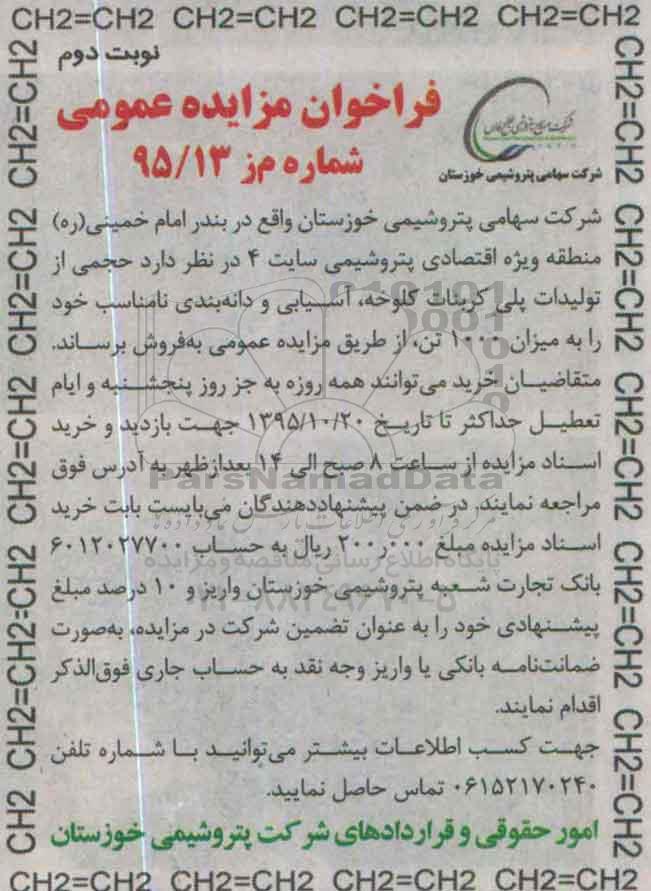 CH2=CH2 CH2=CH2 CH2=CH2 CH2=CH2
نوبت دوم
فراخوان مزایده عمومی
شماره م‌ز ۹۵/۱۳
شرکت سهامی پتروشیمی خوزستان
شرکت سهامی پتروشیمی خوزستان واقع در بندر امام خمینی(ره)
منطقه ویژه اقتصادی پتروشیمی سایت ۴ در نظر دارد حجمی از
تولیدات پلی کربنات کلوخه، آسیابی و دانه‌بندی نامناسب خود
را به میزان ۱۰۰۰ تن، از طریق مزایده عمومی به‌فروش برساند.
متقاضیان خرید می‌توانند همه روزه به جز روز پنجشنبه و ایام
تعطیل حداکثر تا تاریخ ۱۳۹۵/۱۰/۲۰ جهت بازدید و خرید
اسناد مزایده از ساعت ۸ صبح الی ۱۴ بعدازظهر به آدرس فوق
مراجعه نمایند. در ضمن پیشنهاددهندگان می‌بایست بابت خرید
اسناد مزایده مبلغ ۲۰۰٫۰۰۰ ریال به حساب ۶۰۱۲۰۲۷۷۰۰
بانک تجارت شعبه پتروشیمی خوزستان واریز و ۱۰ درصد مبلغ
پیشنهادی خود را به عنوان تضمین شرکت در مزایده، به‌صورت
ضمانت‌نامه بانکی یا واریز وجه نقد به حساب جاری فوق‌الذکر
اقدام نمایند.
جهت کسب اطلاعات بیشتر می‌توانید با شماره تلفن
۰۶۱۵۲۱۷۰۲۴۰ تماس حاصل نمایید.
امور حقوقی و قراردادهای شرکت پتروشیمی خوزستان
CH2=CH2 CH2=CH2 CH2=CH2 CH2=CH2
CH2 CH2=CH2=CH2 CH2=CH2 CH2=CH2 CH2=CH2
CH2=CH2 CH2=CH2 CH2=CH2 CH2=CH2 CH2=CH2
ParsNamadData
پایگاه اطلاع رسانی مناقصه و مزایده